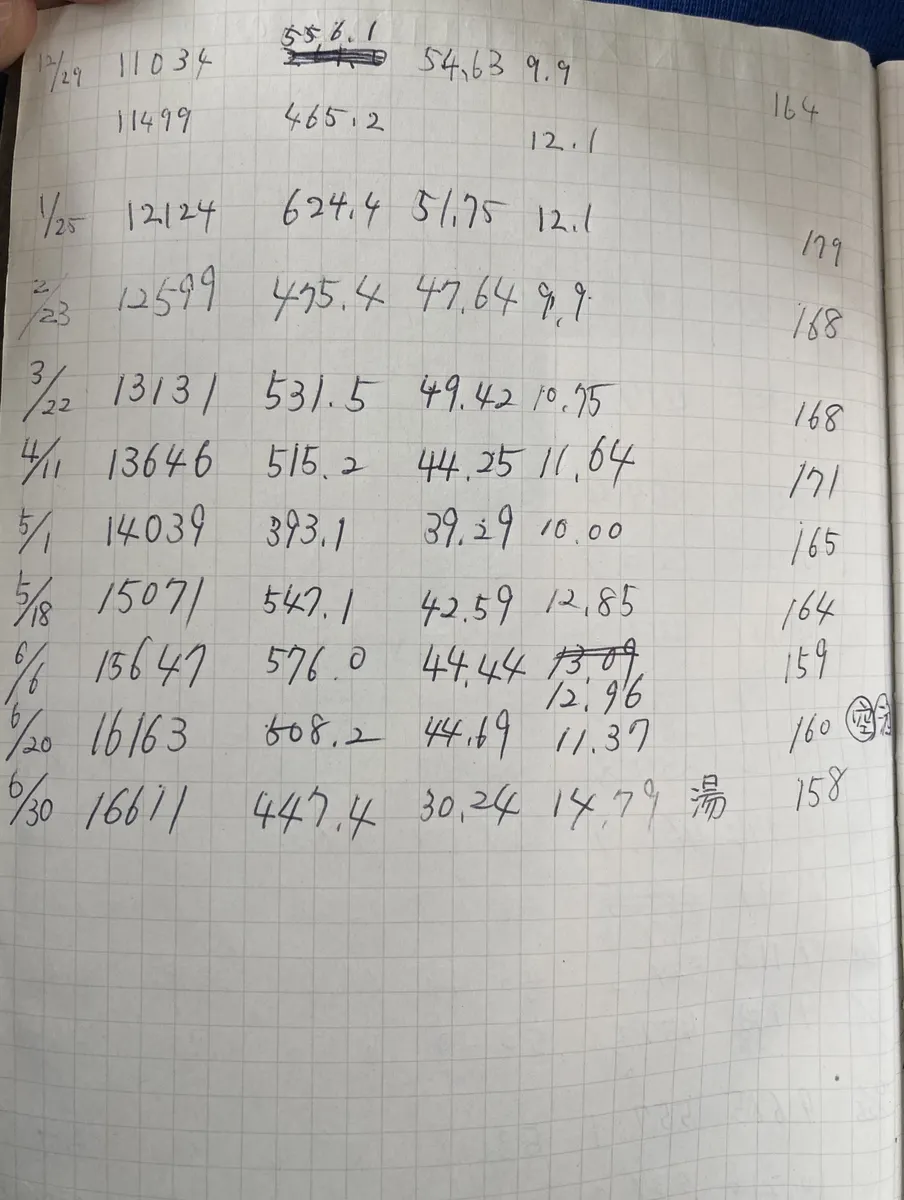 12/29 11034 556.1 54,63 9.9
11499 465.2 12.1 164
1/25 12124 624.4 51,75 12.1 179
2/23 12599 475.4 47,64 9,9 168
3/22 13131 531.5 49.42 10.75 168
4/11 13646 515.2 44.25 11,64 171
5/1 14039 393.1 39.29 10.00 165
5/18 15071 547.1 42.59 12,85 164
6/6 15647 576.0 44,44 13,09 159
12,96
6/20 16163 508.2 44.69 11.37 160 空
6/30 16611 447.4 30,24 14,79 湯 158